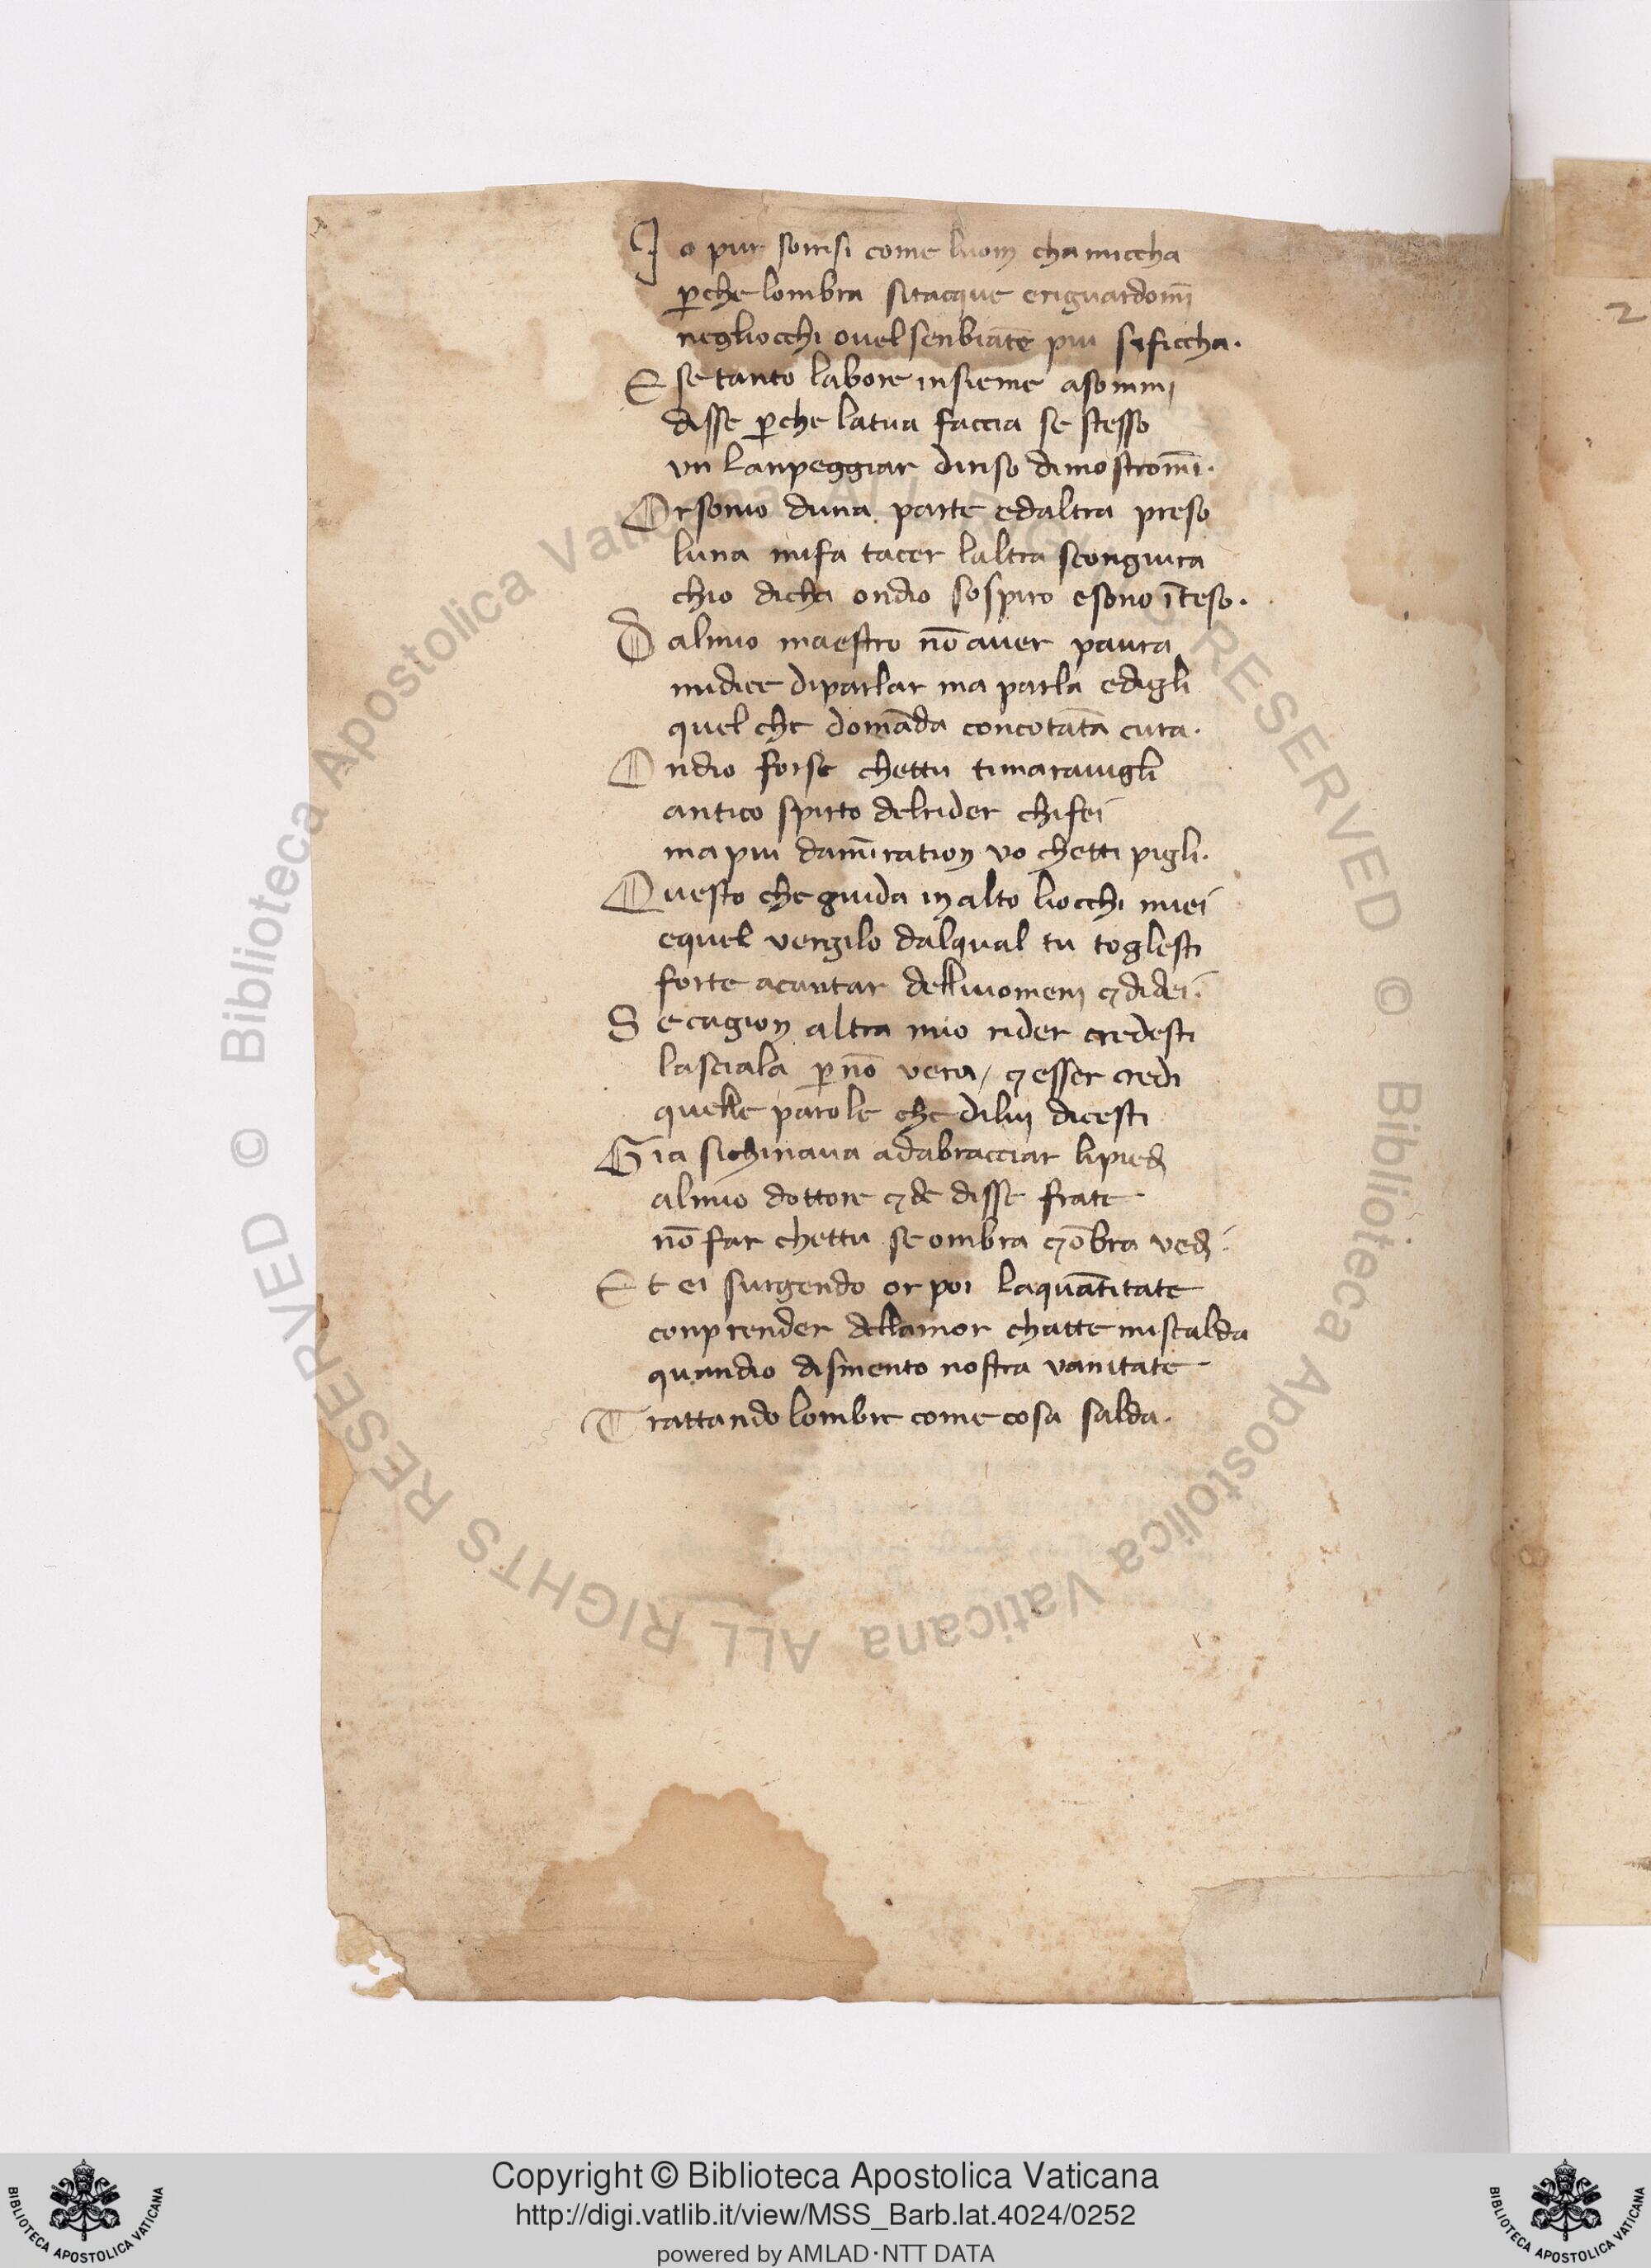 Io pur sorrisi come luom cha miccha
ꝑche lombra sitacque eriguardomi̅
negliocchi ouel senbiāte piu sificcha.
E se tanto labore insieme asommi
disse ꝑche latua faccia se stesso
vn lanpeggiar diriso dimostromi̅.
Or sonio duna parte edaltra preso
luna mifa tacer laltra scongiura
chio dicha ondio sospiro esono īteso.
Dal mio maestro nō auer paura
midice diparlar ma parla edigli
quel che domāda concotāta cura.
Ondio forse chettu timarauigli
antico spirto delrider chifei
ma piu damiration vo chetti pigli.
Questo che guida in alto liocchi miei
equel vergilo dalqual tu toglesti
forte acantar delliuomeni ⁊ didei.
Se cagion altra mio rider credesti
lasciala ꝑ nō vera / ⁊ esser credi
quelle parole che dilui dicesti
Gia sichinaua adabracciar lipiedi
almio dottore ⁊ de disse frate
nō far chettu se ombra ⁊ ōbra vedi.
Et ei surgendo or poi laquātitate
conprender dellamor chatte miscalda
quandio dismento nostra vanitate
Trattando lombre come cosa salda.
2
© Biblioteca Apostolica Vaticana ALL RIGHTS RESERVED © Biblioteca Apostolica Vaticana ALL RIGHTS RESERVED
Copyright © Biblioteca Apostolica Vaticana
http://digi.vatlib.it/view/MSS_Barb.lat.4024/0252
powered by AMLAD·NTT DATA
BIBLIOTECA APOSTOLICA VATICANA
BIBLIOTECA APOSTOLICA VATICANA